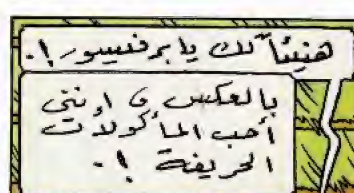 هنيئاً لك يا برفسور !.
بالعكس ، إنني
أحب المأكولات
الحريفة !.